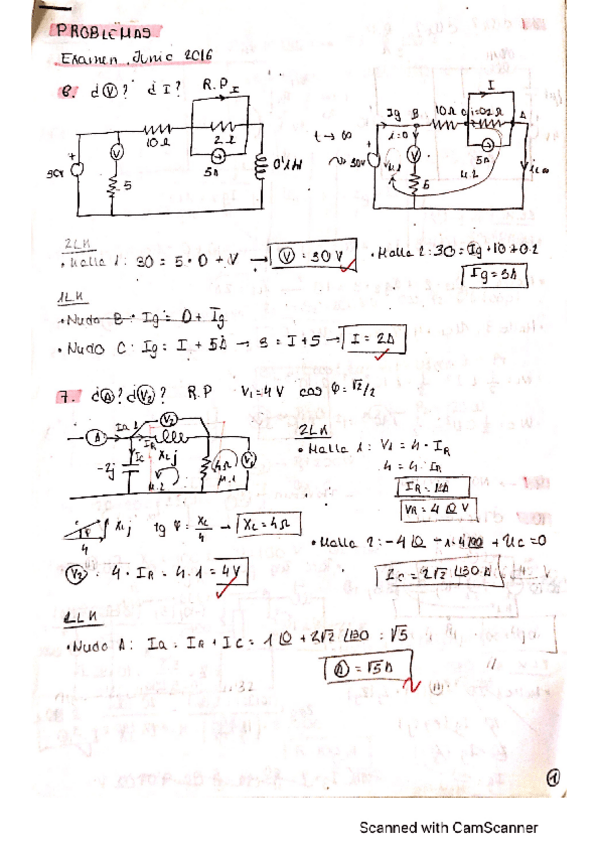 PROBLEMAS
Examen Junio 2016
6. ¿V? ¿I? R.P
I
10Ω
2Ω
5A
V
5
30V
t→∞
Ig B 10Ω C
I
A
V
5
5A
30V
2LK
• Malla 1: 30 = 5 · 0 + V → V = 30V
• Malla 2: 30 = Ig · 10 + 0.2
Ig = 3A
1LK
• Nudo B: Ig = 0 + Ig
• Nudo C: Ig = I + 5A → 3 = I + 5 → I = 2A
7. ¿A? ¿V2? R.P V1 = 4V cos φ = √2/2
V2
A
Ia
IR
Ic
XLj
-2j
4Ω
V1
M.2
M.1
2LK
• Malla 1: V1 = 4 · IR
4 = 4 · IR
IR = 1A
VR = 4 0 V
XLj
4
tg φ = XL/4 → XL = 4Ω
V2 = 4 · IR = 4 · 1 = 4V
• Malla 2: -4 0 + Uc = 0
Ic = 2√2 130 A
1LK
• Nudo A: Ia = IR + Ic = 1 0 + 2√2 130 = √5
A = √5A
1
Scanned with CamScanner